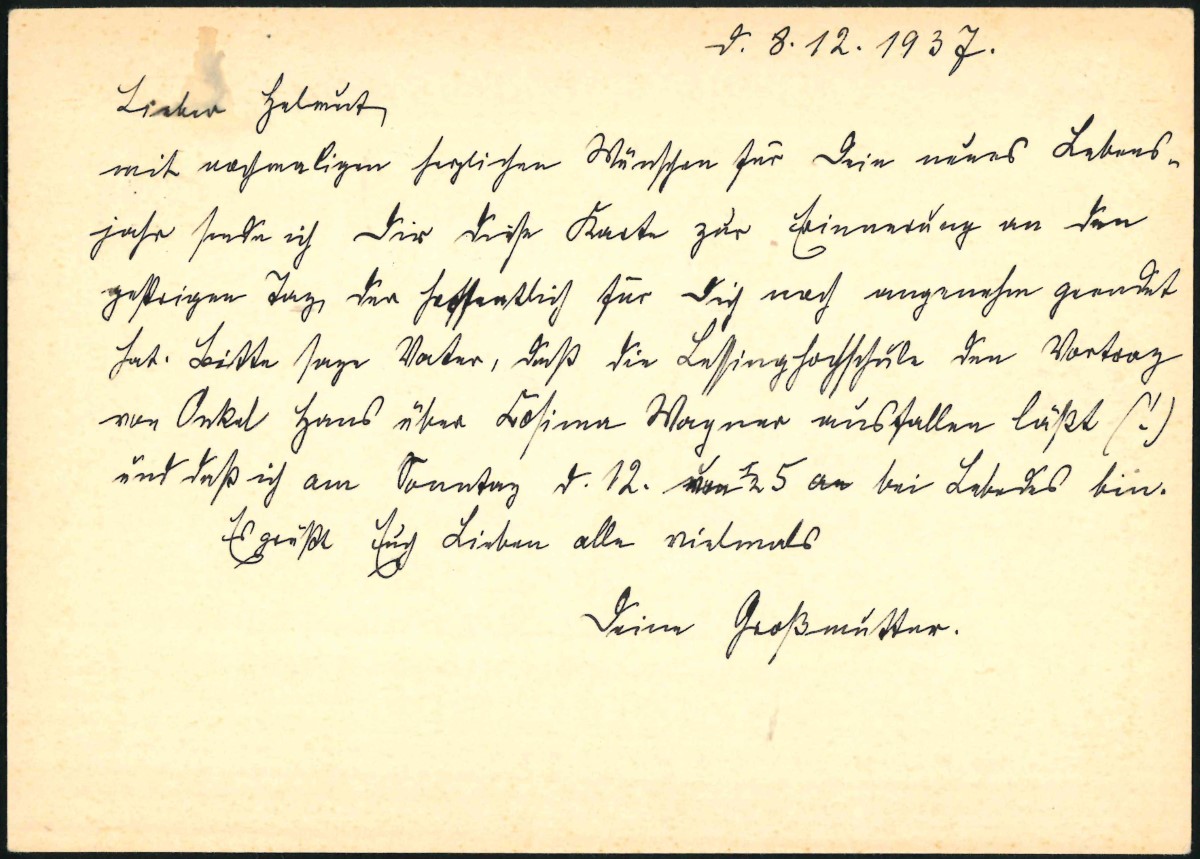 d. 8.12.1937.
Lieber Helmut,
mit nochmaligen herzlichen Wünschen für Dein neues Lebens-
jahr sende ich Dir diese Karte zur Erinnerung an den
gestrigen Tag, der hoffentlich für Dich noch angenehm geendet
hat. Bitte sage Vater, daß die Lessinghochschule den Vortrag
von Onkel Hans über Cosima Wagner ausfallen läßt (!)
und daß ich am Sonntag d. 12. von ½5 an bei Lebedes bin.
Es grüßt Euch Lieben alle vielmals
Deine Großmutter.